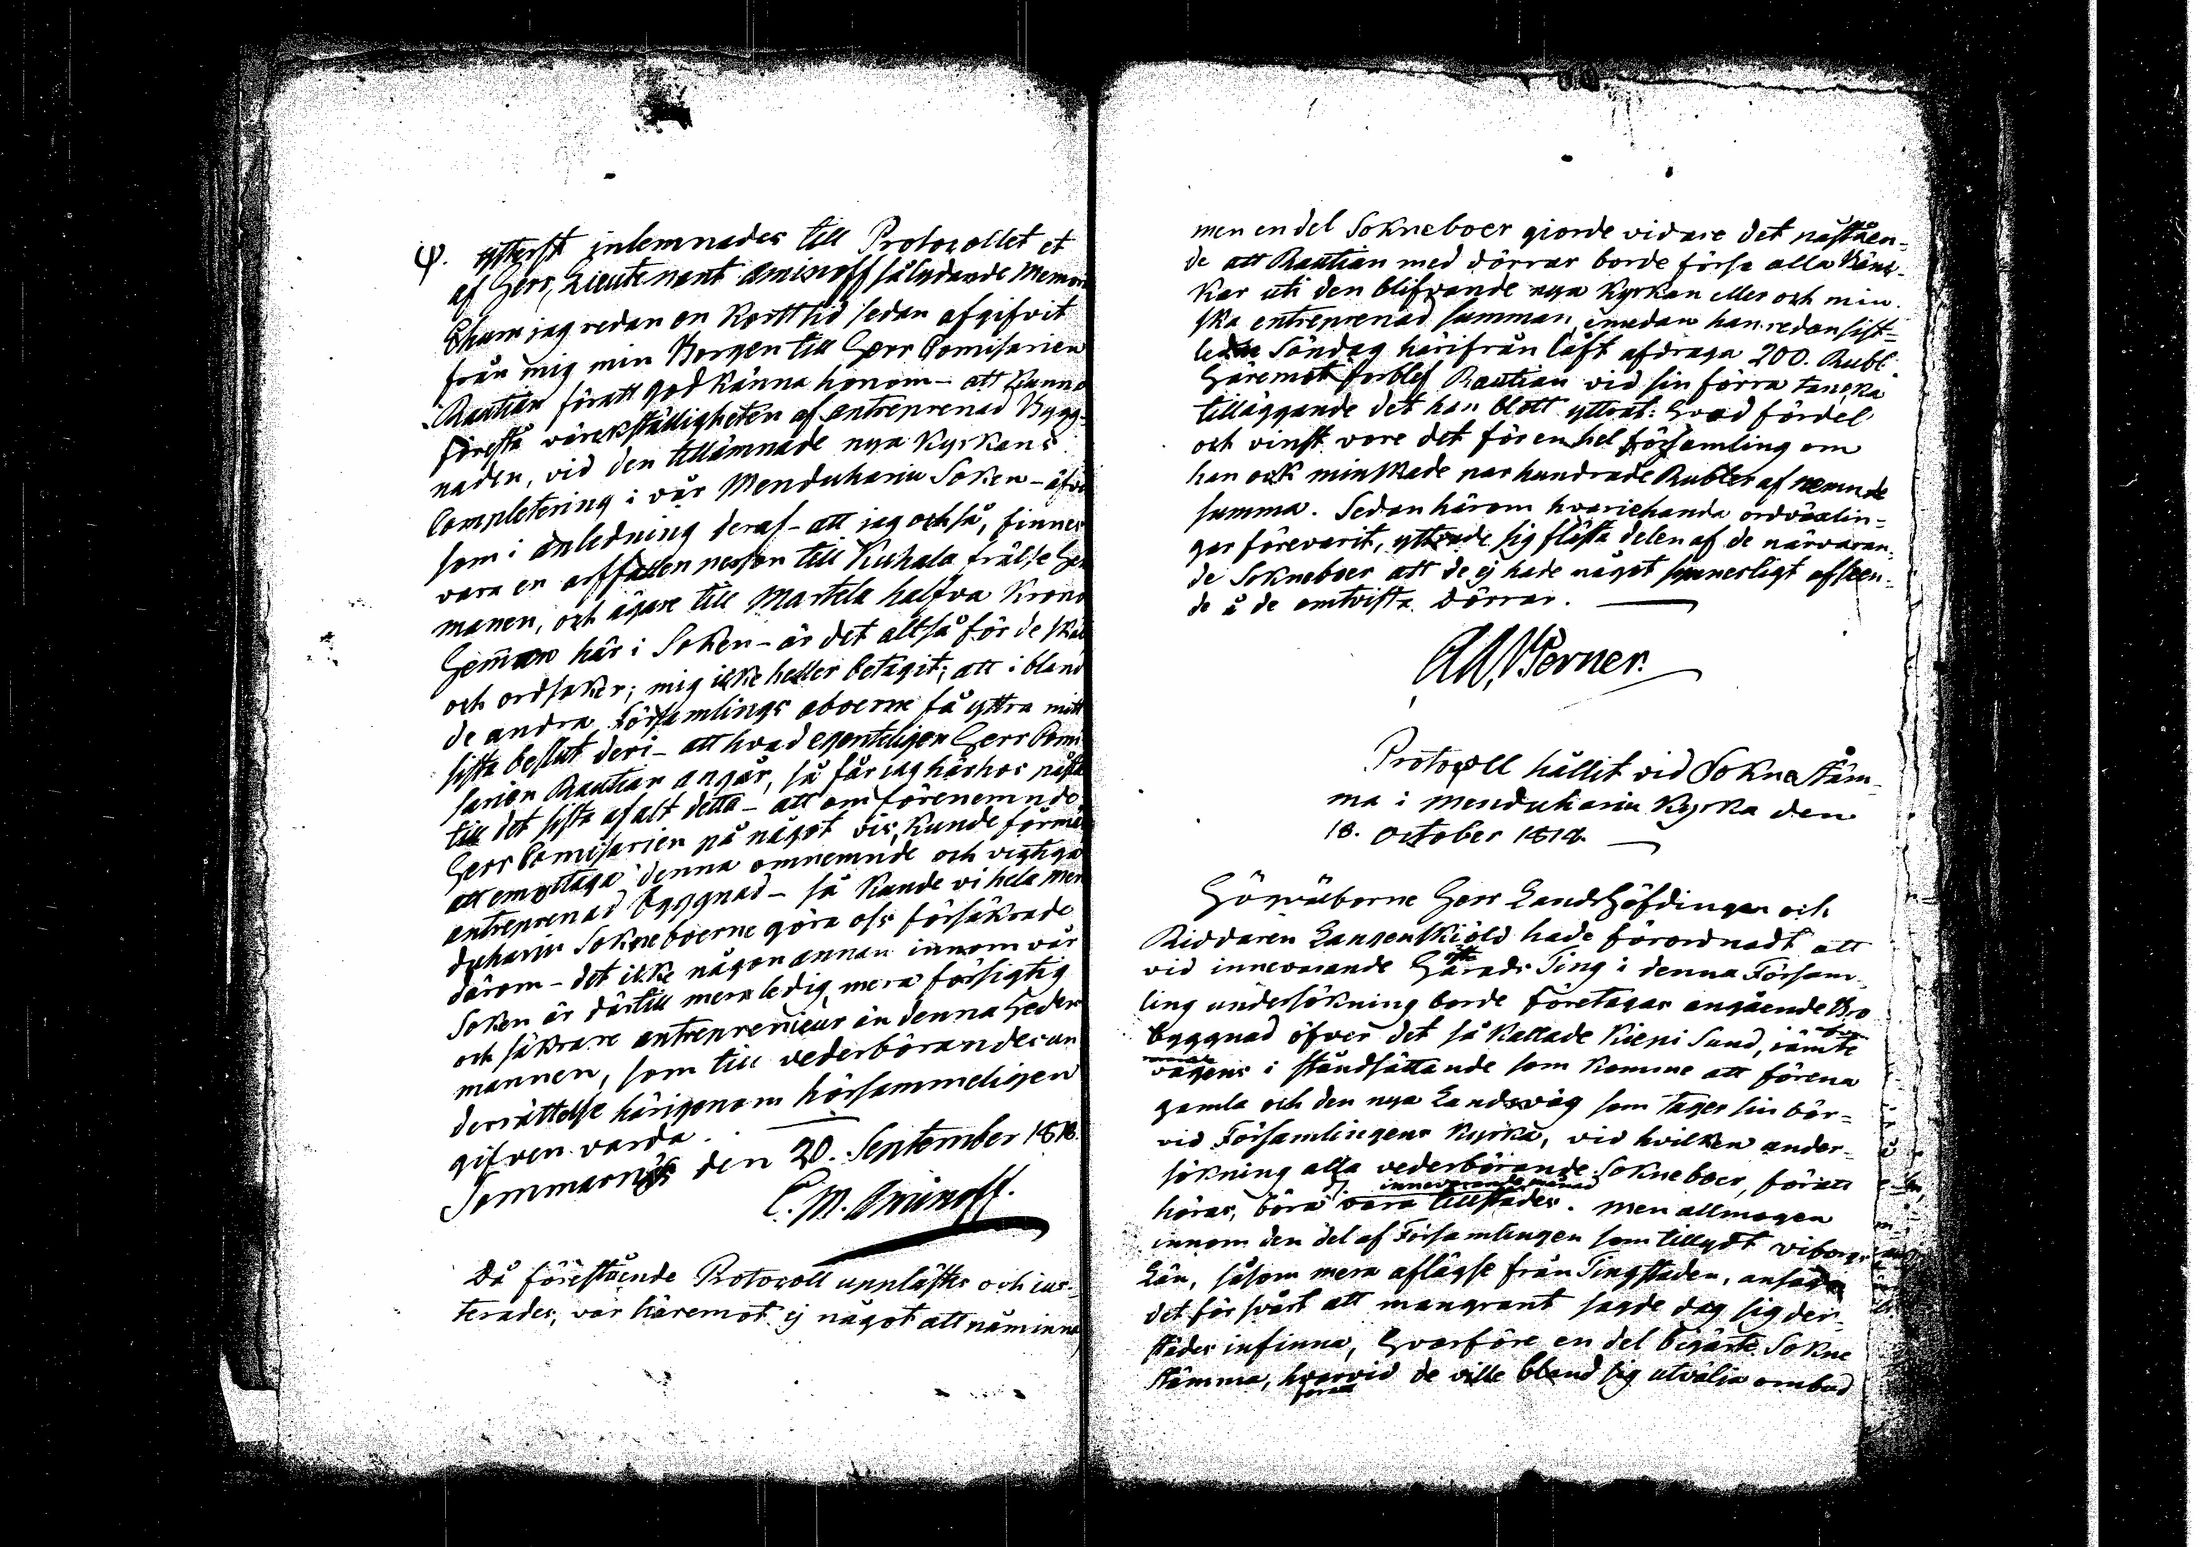 φ. ytterst inlemnades till Protocollet et
af Herr, Lieutenant Aminoff sålydande Memori
Ehuru jag redan en Kort tid sedan afgifvit
från mig min Borgen till Herr Comisarien
Rautian föratt godkänna honom - att kunna
förestå värckställigheten af entreprenad Bygg-
naden, vid den tillämnade nya Kyrkans
Completering i vår Menduharju Soken - äfve
som i anledning deraf - att jag också, finnes
vara en arffallen person till Kuhala frälse He
manen, och ägare till Martela halfva Krono
Hemman här i Soken - är det altså för de skäl
och ordsaker; mig icke heller betagit; att ibland
de andra Församlings aboerne få yttra mitt
sista beslut deri - att hvad egenteligen Herr Comi-
sarien Rautian angår, så får jag härhos påstå
till det sista af alt detta - att om förenemnde
Herr Comisarien på något vis, Kunde förmås
att emottaga denna omnemnde och vigtiga
entreprenad Byggnad - så Kunde vi hela Men
duharju Sokneboerne göra oss försäkrade
därom - det icke någon annan innom vår
Soken är därtill mera ledig, mera försigtig
och säkrare entreprenieur än denna Heders
mannen, som till vederbörandes un
derrättelse härigenom hörsammeligen
gifven varda.
Tommarnäs den 20. September 1818.
C. M. Aminoff.
Då förestående Protocoll upplästes och jus-
terades, var häremot ej något att påminna
men en del Sokneboer giorde vidare det påståen-
de att Rautian med dörrar borde förse alla Bänc-
kar uti den blifvande nya Kyrkan eller och min-
ska entreprenad summan, emedan han redan sist-
leden Söndag härifrån låft afdraga 200. Rubl.
Häremot förblef Rautian vid sin förra tancka
tilläggande det han blott yttrat: Hvad fördel
och vinst vore det för en hel församling om
han ock minskade par hundrade Rubler af nemnde
summa. Sedan härom hvariehanda ordväxlin-
gar förevarit, yttrade sig flästa delen af de närvaran-
de Sokneboer att de ej hade något synnerligt afseen-
de å de omtvista dörrar.
Ad. Perner.
Protocoll hållit vid Sokne Stäm-
ma i Menduhariu Kyrka den
18. October 1818.
Högvälborne Herr Landshöfdingen och
Riddaren Langenskiöld hade förordnadt att
vid innevarande Härads Ting i denna Försam-
ling undersökning borde företagas angående Bro
byggnad öfver det så Kallade Kieni Sund, jämte
vägens i ståndsättande som Komme att förena
gamla och den nya Landsväg som tager sin bör-
vid Församlingens Kyrka, vid hvilken under-
sökning alla vederbörande Sokneboer, föratt
höras, böra innevarande månad vara tillstädes. Men allmogen
innom den del af Församlingen som tillydt Viborgs
Län, såsom mera aflägse från Tingstaden, ansåge
det för svårt att mangrant sagde dag sig der-
städes infinna, Hvarföre en del begärte Sokne
stämma, hvarvid de ville bland sig utvälja ombud
föratt